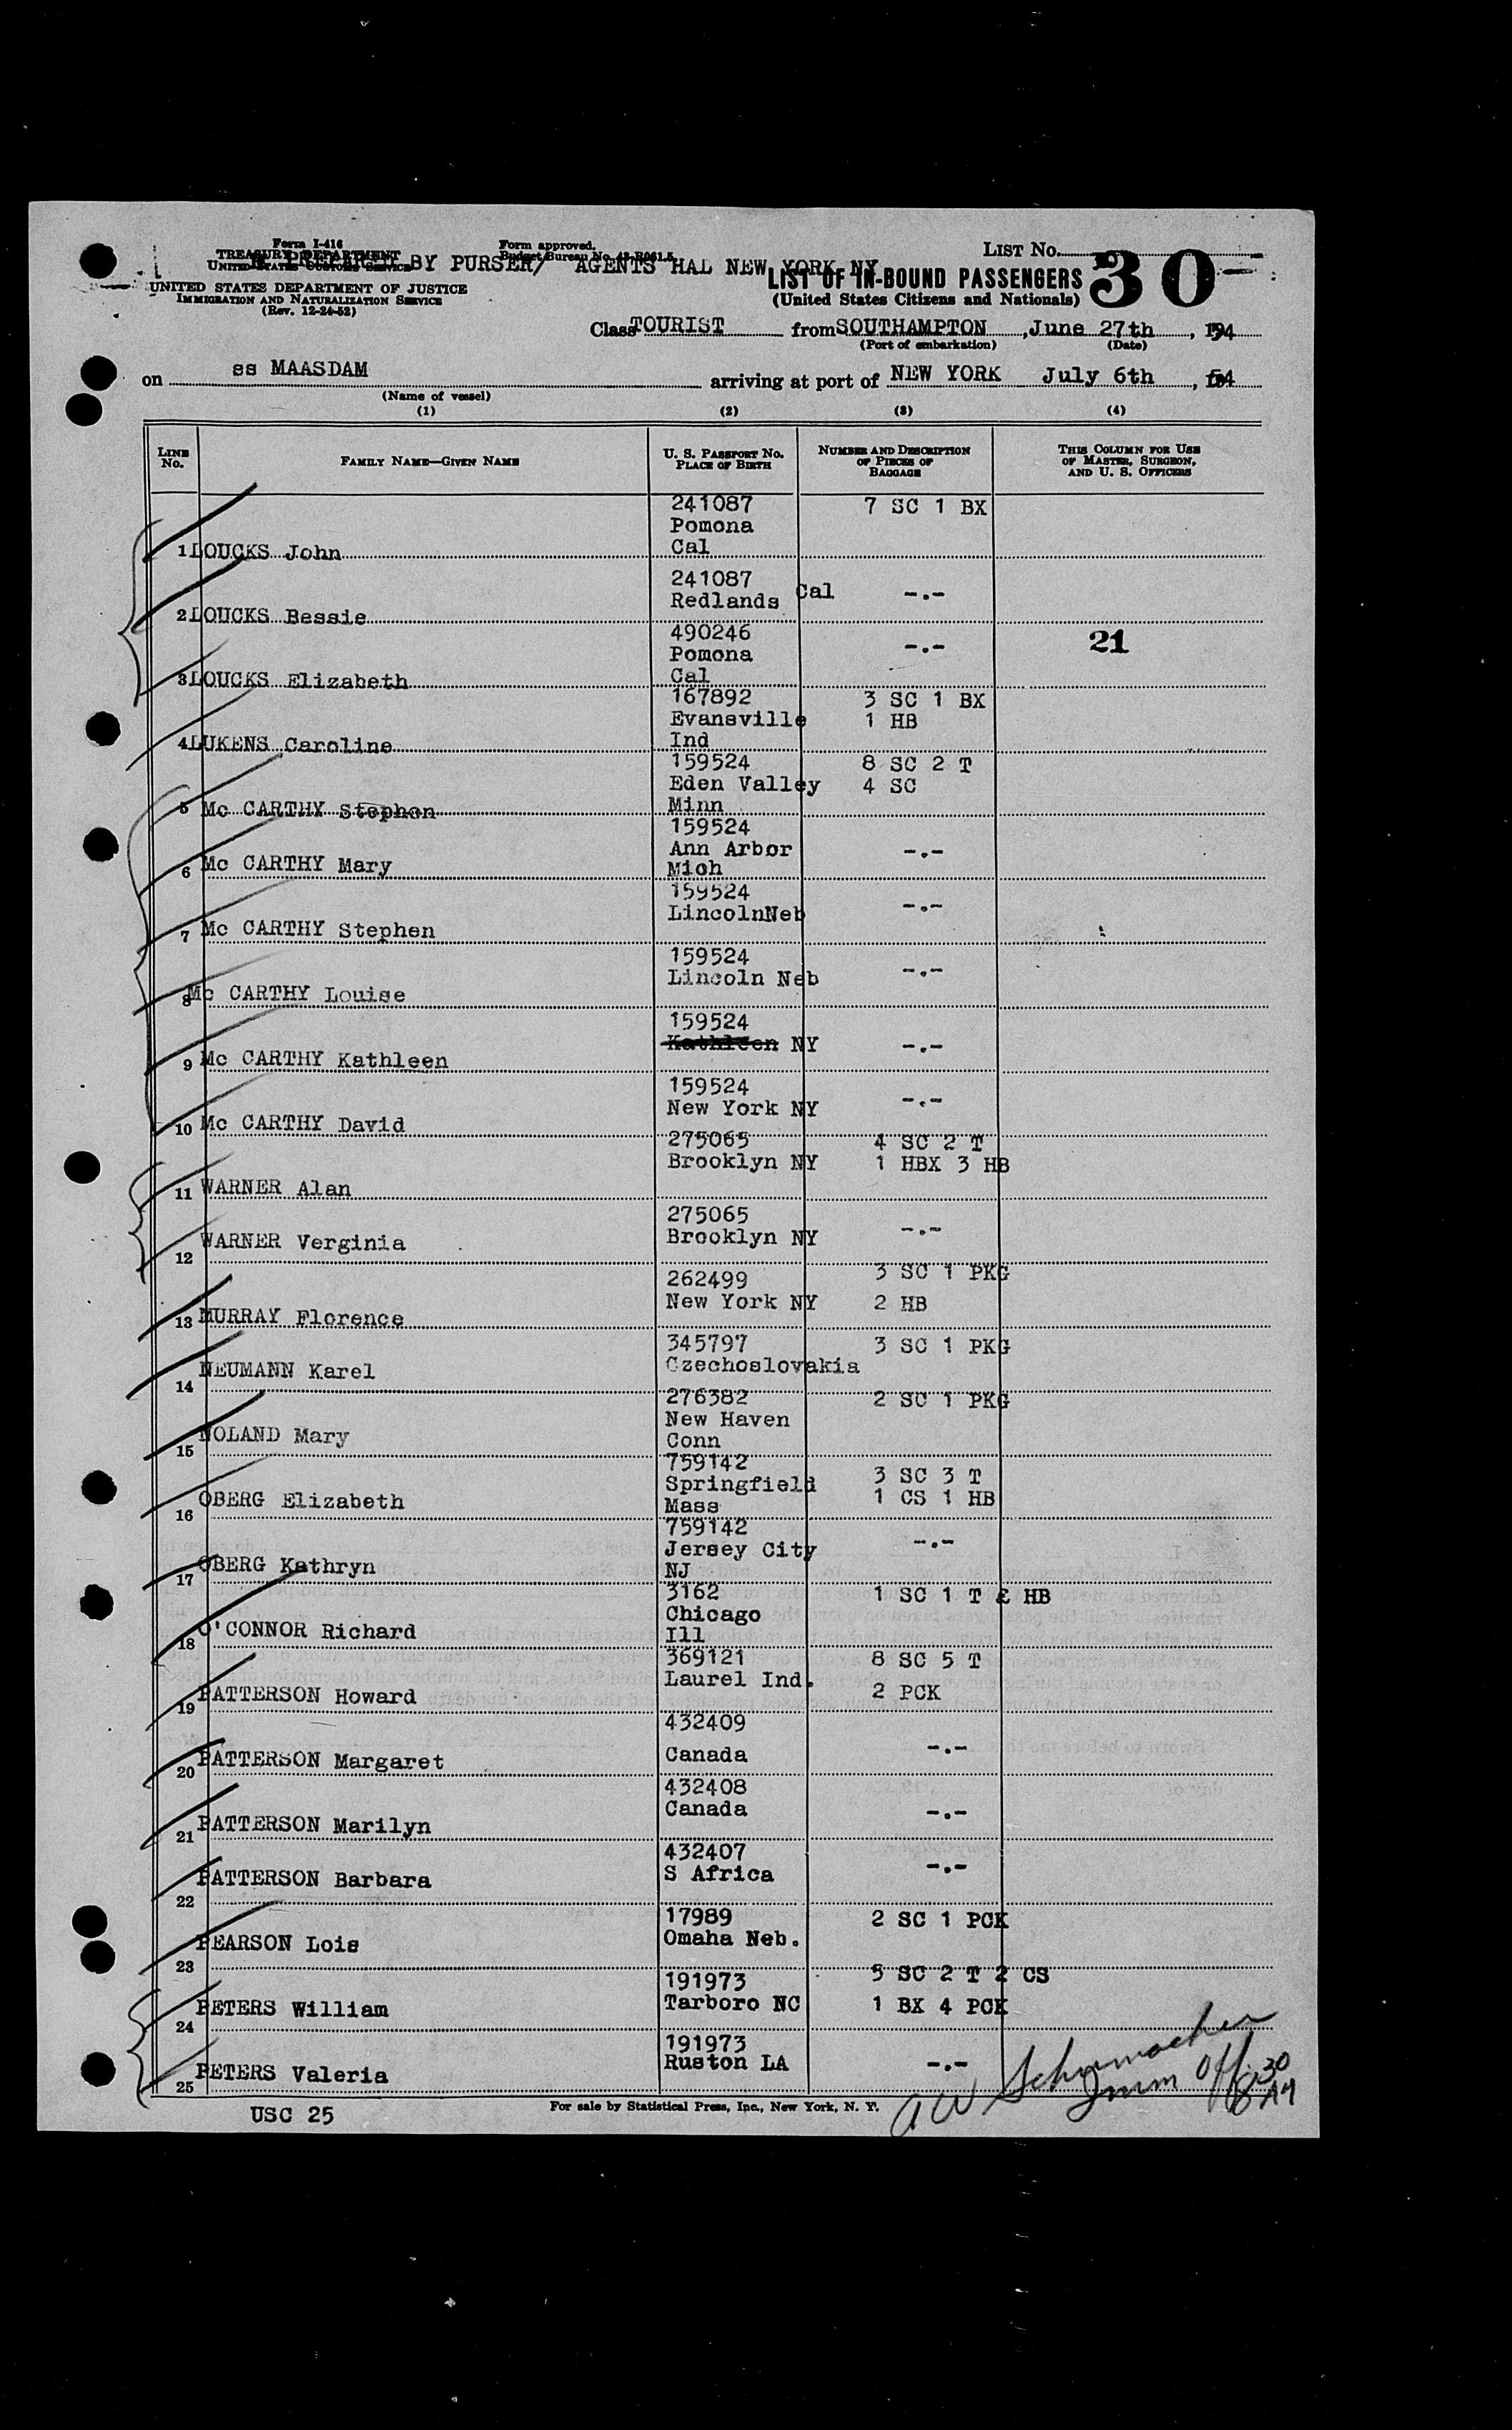 Form I-416
TREASURY DEPARTMENT
UNITED STATES CUSTOMS SERVICE
UNITED STATES DEPARTMENT OF JUSTICE
IMMIGRATION AND NATURALIZATION SERVICE
(Rev. 12-24-52)
Form approved.
Budget Bureau No.
PREPARED BY PURSER/ AGENTS HAL NEW YORK NY
LIST No. 30
LIST OF IN-BOUND PASSENGERS
(United States Citizens and Nationals)
Class TOURIST from SOUTHAMPTON, June 27th, 1954
(Port of embarkation) (Date)
on ss MAASDAM arriving at port of NEW YORK July 6th, 54
(Name of vessel)
(1) (2) (3) (4)
LINE No. FAMILY NAME—GIVEN NAME U. S. PASSPORT No. PLACE OF BIRTH NUMBER AND DESCRIPTION OF PIECES OF BAGGAGE THIS COLUMN FOR USE OF MASTER, SURGEON, AND U. S. OFFICERS
1 LOUCKS John 241087 Pomona Cal 7 SC 1 BX
2 LOUCKS Bessie 241087 Redlands Cal -.-
3 LOUCKS Elizabeth 490246 Pomona Cal -.- 21
4 LUKENS Caroline 167892 Evansville Ind 3 SC 1 BX 1 HB
5 Mc CARTHY Stephen 159524 Eden Valley Minn 8 SC 2 T 4 SC
6 Mc CARTHY Mary 159524 Ann Arbor Mich -.-
7 Mc CARTHY Stephen 159524 LincolnNeb -.-
8 Mc CARTHY Louise 159524 Lincoln Neb -.-
9 Mc CARTHY Kathleen 159524 Kathleen NY -.-
10 Mc CARTHY David 159524 New York NY -.-
11 WARNER Alan 275065 Brooklyn NY 4 SC 2 T 1 HBX 3 HB
12 WARNER Verginia 275065 Brooklyn NY -.-
13 MURRAY Florence 262499 New York NY 3 SC 1 PKG 2 HB
14 NEUMANN Karel 345797 Czechoslovakia 3 SC 1 PKG
15 NOLAND Mary 276382 New Haven Conn 2 SC 1 PKG
16 OBERG Elizabeth 759142 Springfield Mass 3 SC 3 T 1 CS 1 HB
17 OBERG Kathryn 759142 Jersey City NJ -.-
18 O'CONNOR Richard 3162 Chicago Ill 1 SC 1 T £ HB
19 PATTERSON Howard 369121 Laurel Ind. 8 SC 5 T 2 PCK
20 PATTERSON Margaret 432409 Canada -.-
21 PATTERSON Marilyn 432408 Canada -.-
22 PATTERSON Barbara 432407 S Africa -.-
23 PEARSON Lois 17989 Omaha Neb. 2 SC 1 PCK
24 PETERS William 191973 Tarboro NC 5 SC 2 T 2 CS 1 BX 4 PCK
25 PETERS Valeria 191973 Ruston LA -.-
USC 25
For sale by Statistical Press, Inc., New York, N. Y.
AW Schumacher
Imm Off